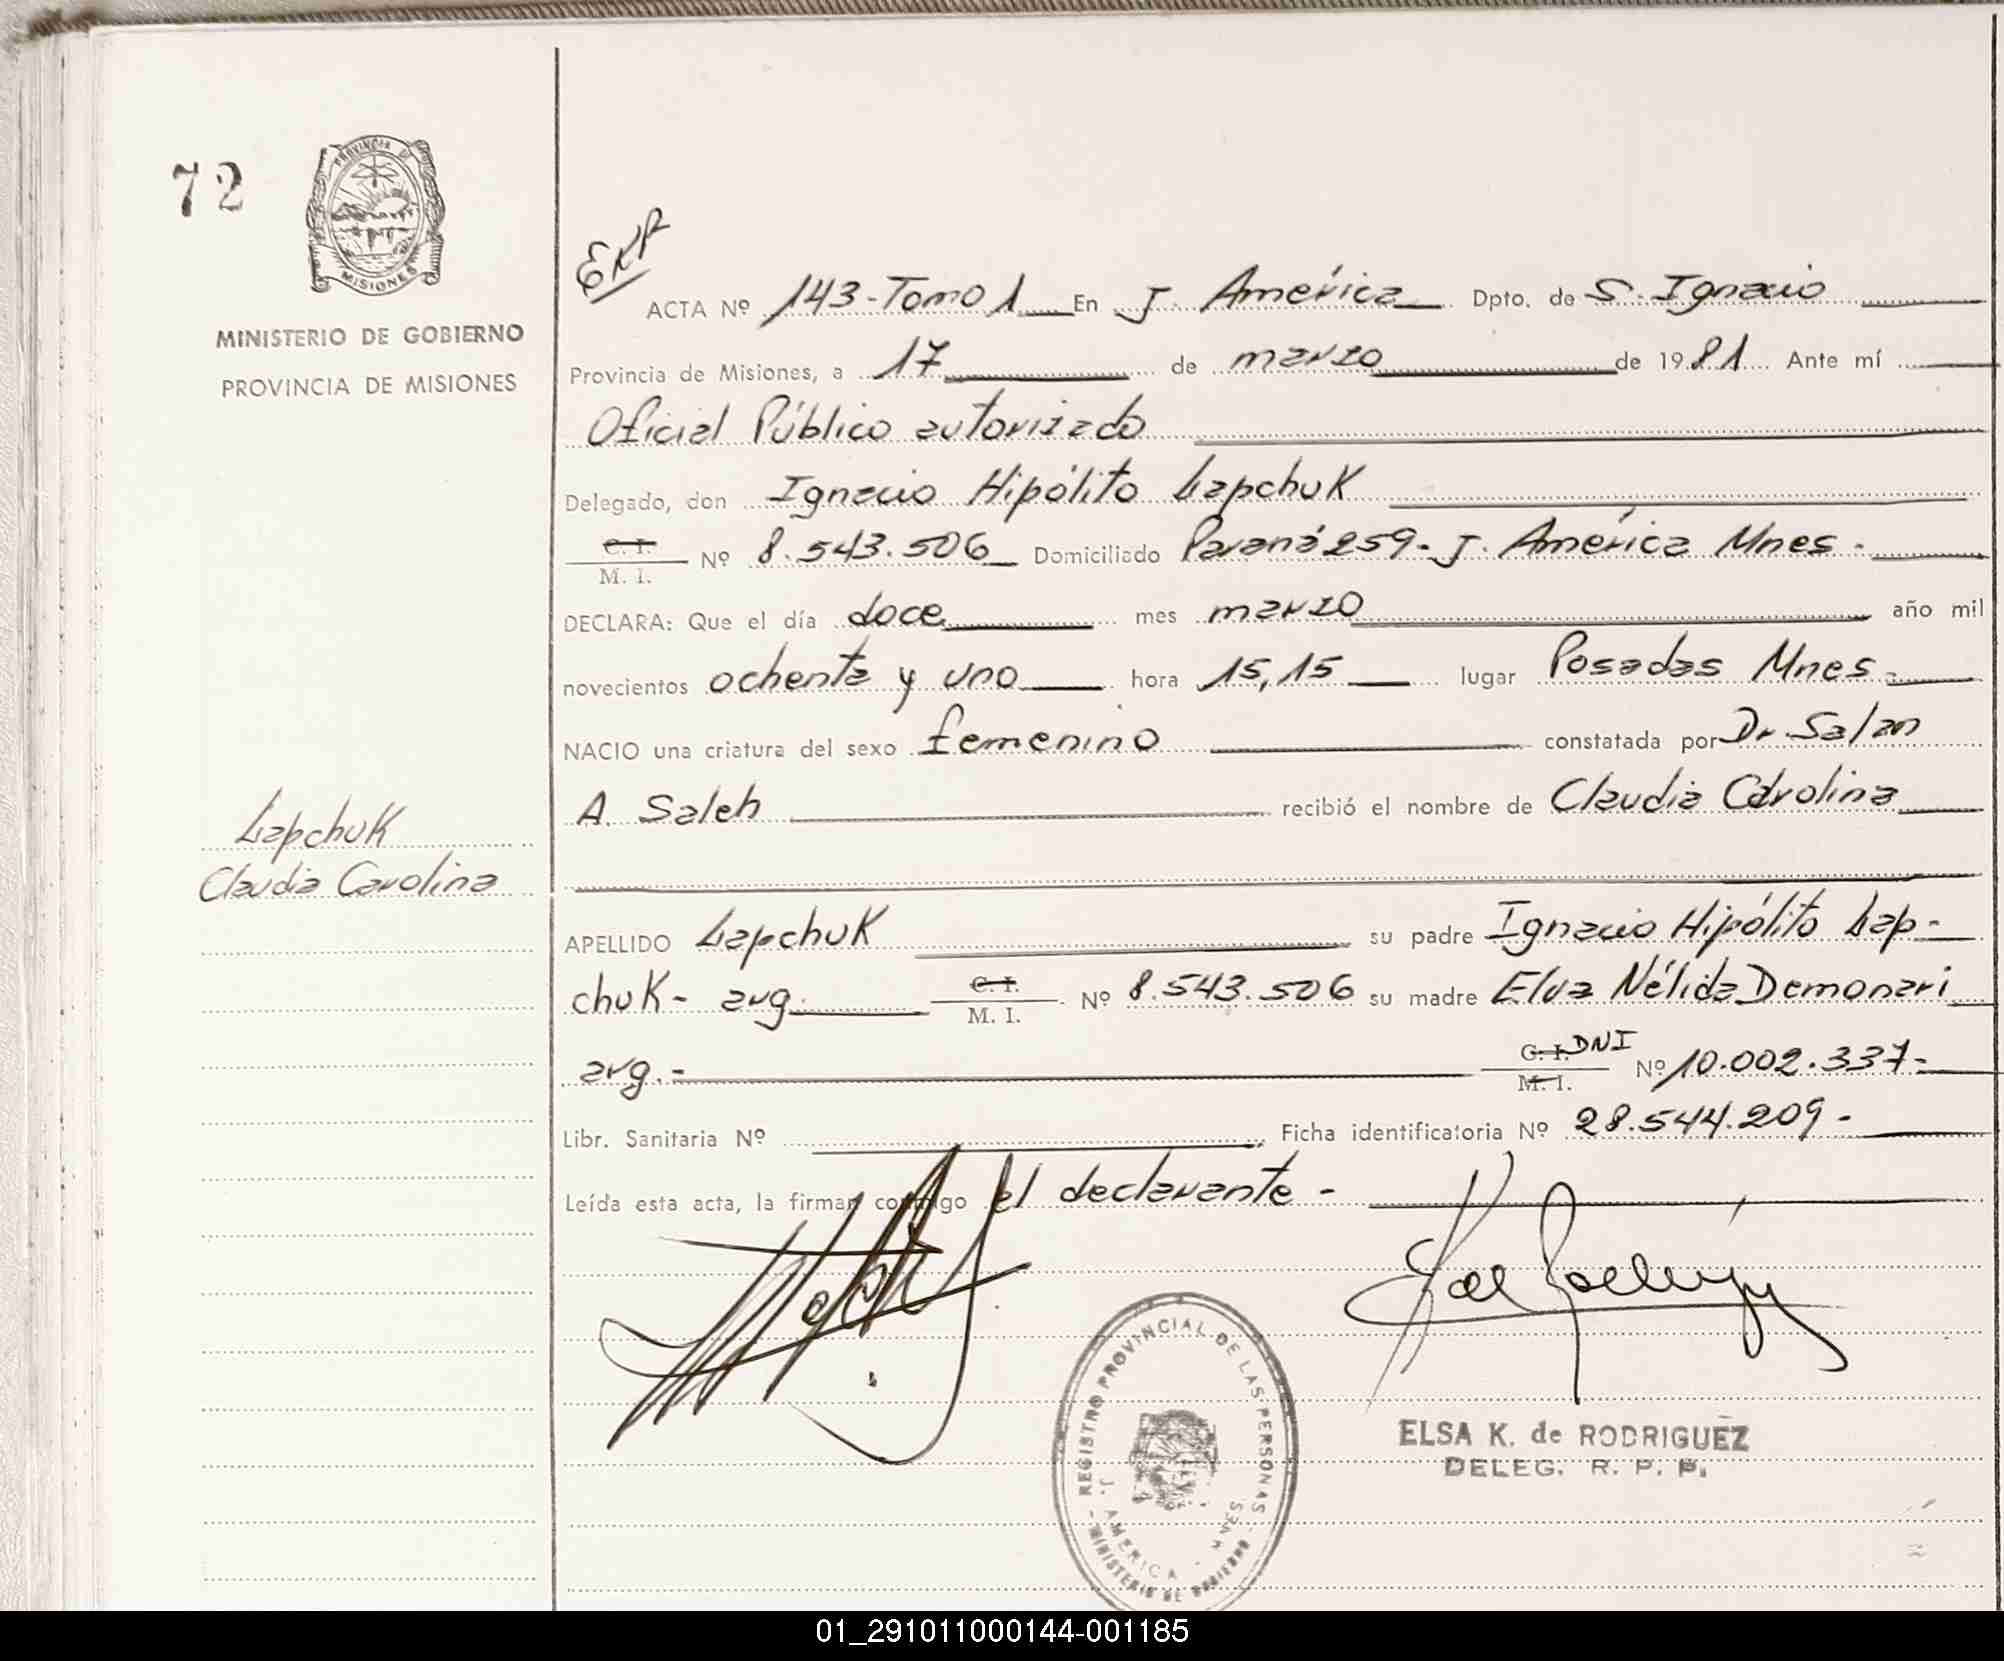 72
PROVINCIA DE
MISIONES
MINISTERIO DE GOBIERNO
PROVINCIA DE MISIONES
ACTA Nº 143-Tomo 1 En J. América Dpto. de S. Ignacio
Provincia de Misiones, a 17 de marzo de 1981 Ante mí
Oficial Público autorizado
Delegado, don Ignacio Hipólito Lapchuk
C. I.
M. I. Nº 8.543.506 Domiciliado Paraná 259- J. América Mnes -
DECLARA: Que el día doce mes marzo año mil
novecientos ochenta y uno hora 15,15 lugar Posadas Mnes.
NACIO una criatura del sexo femenino constatada por Dr Salan
A. Saleh recibió el nombre de Claudia Carolina
Lapchuk
Claudia Carolina
APELLIDO Lapchuk su padre Ignacio Hipólito Lap-
chuk- arg. C. I.
M. I. Nº 8.543.506 su madre Elva Nélida Demonari
arg.- C. I. DNI
M. I. Nº 10.002.337-
Libr. Sanitaria Nº Ficha identificatoria Nº 28.544.209-
Leída esta acta, la firman conmigo el declarante -
REGISTRO PROVINCIAL DE LAS PERSONAS
J. AMERICA - MNES.
- MINISTERIO DE GOBIERNO -
ELSA K. de RODRIGUEZ
DELEG. R. P. P.
01_291011000144-001185